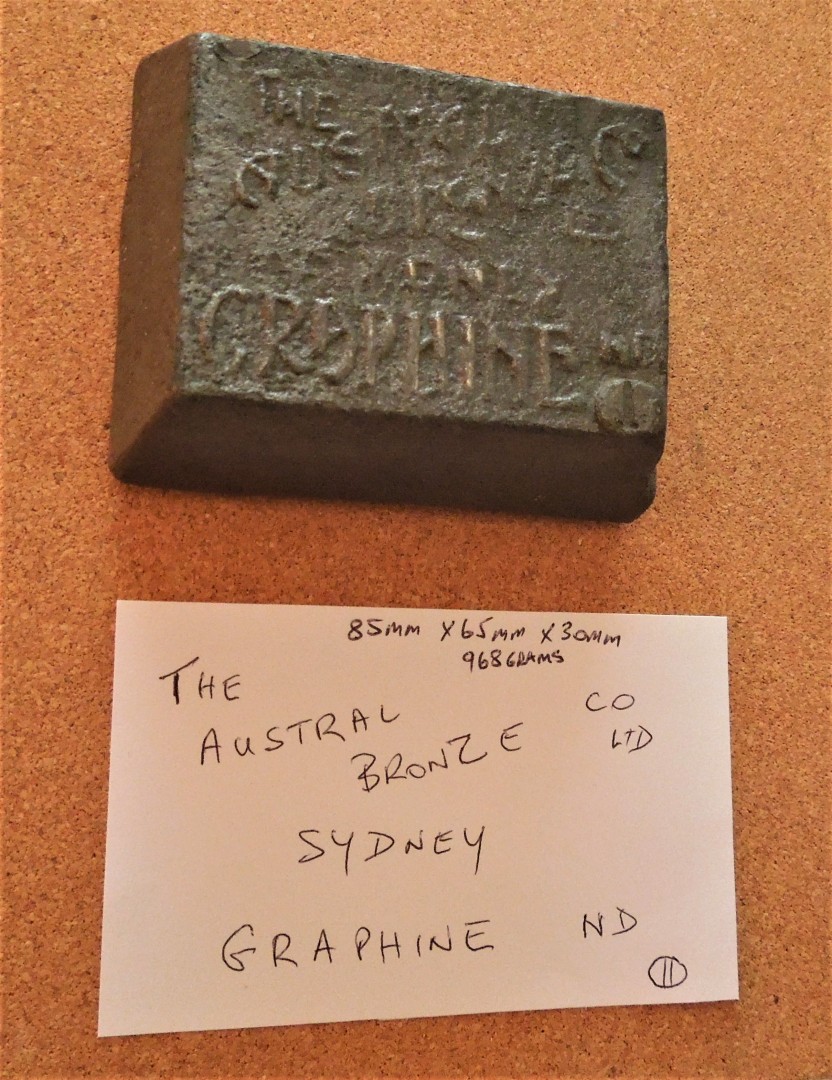 THE
AUSTRAL
SYDNEY
GRAPHINE ND
11
85mm X 65mm X 30mm
968 GRAMS
THE
AUSTRAL CO
BRONZE LTD
SYDNEY
GRAPHINE ND
11